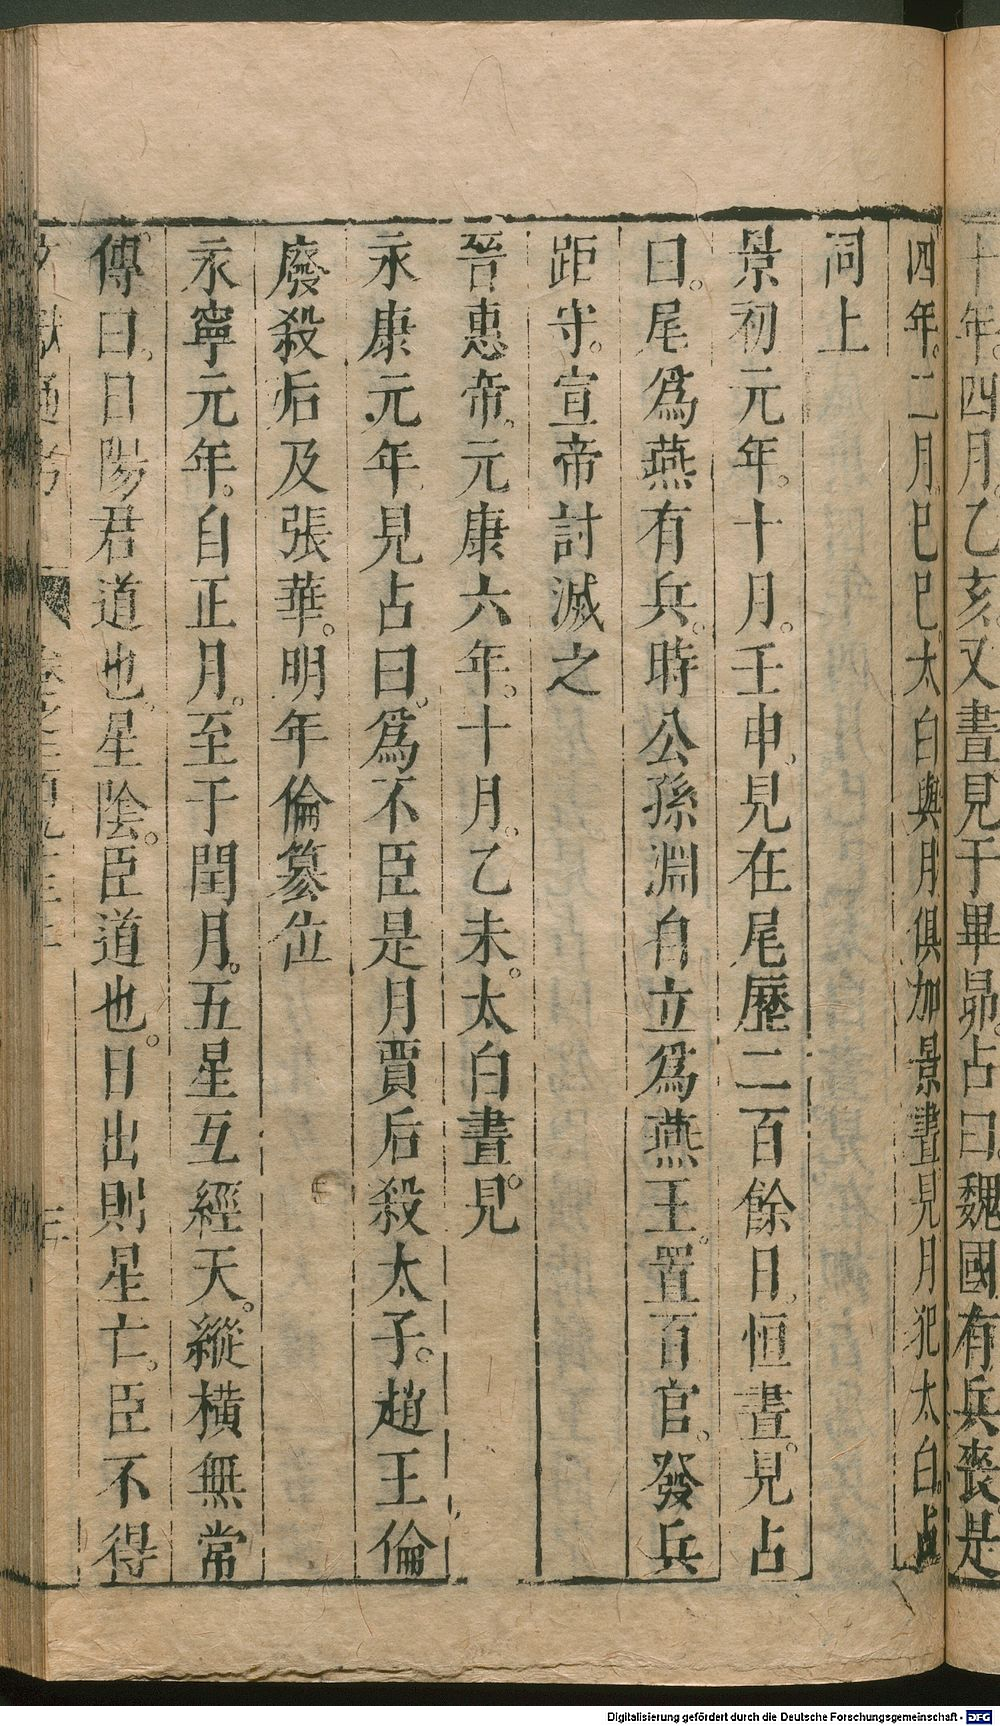 十年。四月。乙亥又晝見于畢昴。占曰。魏國有兵喪是
四年。二月。巳巳。太白與月俱加景晝見月犯太白。占
同上
景初元年。十月。壬申。見在尾歷二百餘日。恒晝。見占
曰。尾為燕有兵。時公孫淵自立為燕王。置百官。發兵
距守。宣帝討滅之
晉惠帝。元康六年。十月。乙未。太白晝。見
永康元年見占曰。為不臣是月賈后殺太子。趙王倫
廢殺后及張華。明年倫篡位
永寧元年。自正月。至于閏月。五星互經天。縱橫無常
傳曰。日陽君道也。星陰。臣道也。日出則星亡。臣不得
Digitalisierung gefördert durch die Deutsche Forschungsgemeinschaft - DFG